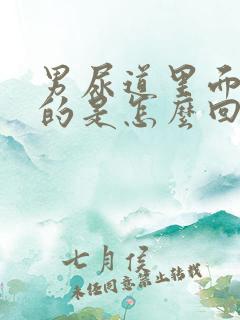 男尿道里面
的是怎麼回
七月侯
未经同意禁止转载